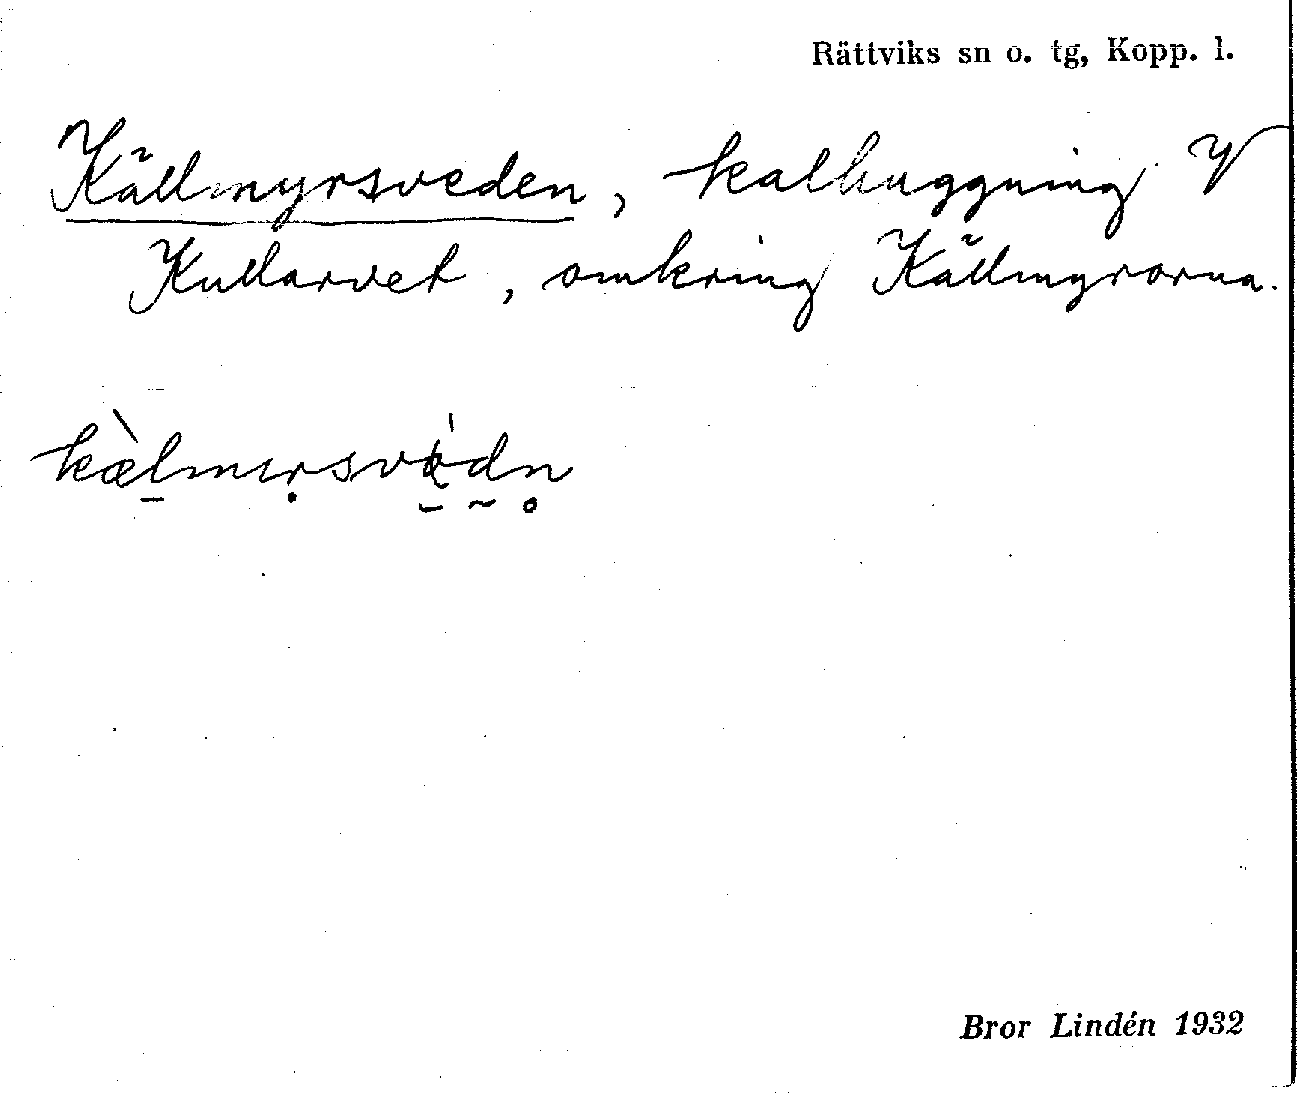 Rättviks sn o. tg, Kopp. l.
Källmyrsveden, kalhuggning V
Kullarvet, omkring Källmyrorna.
kæ̀l̠mɪṛsvè̱dn̥
Bror Lindén 1932